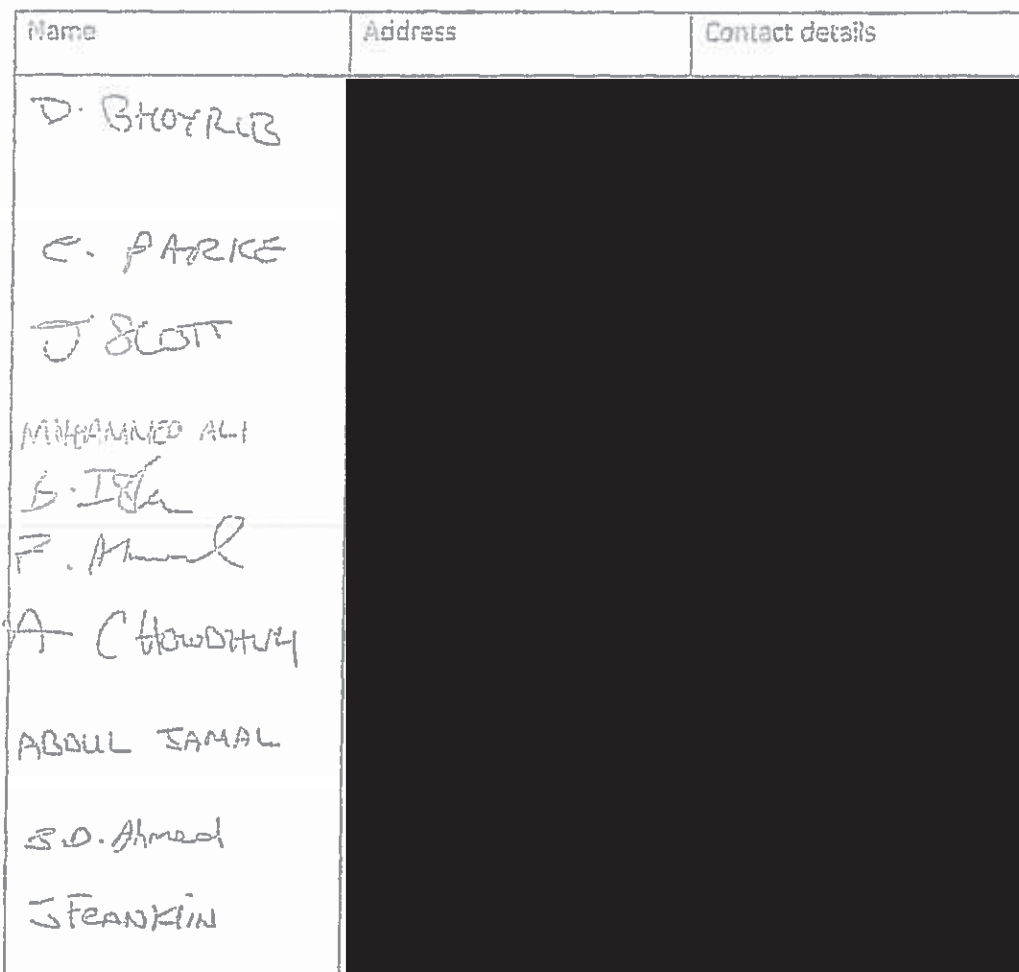 Name Address Contact details
D. BHOYRUB
C. PARKE
J SCOTT
MOHAMMED ALI
B.
F. Ahmed
A CHOWDHURY
ABDUL JAMAL
S.D. Ahmed
J FRANKLIN